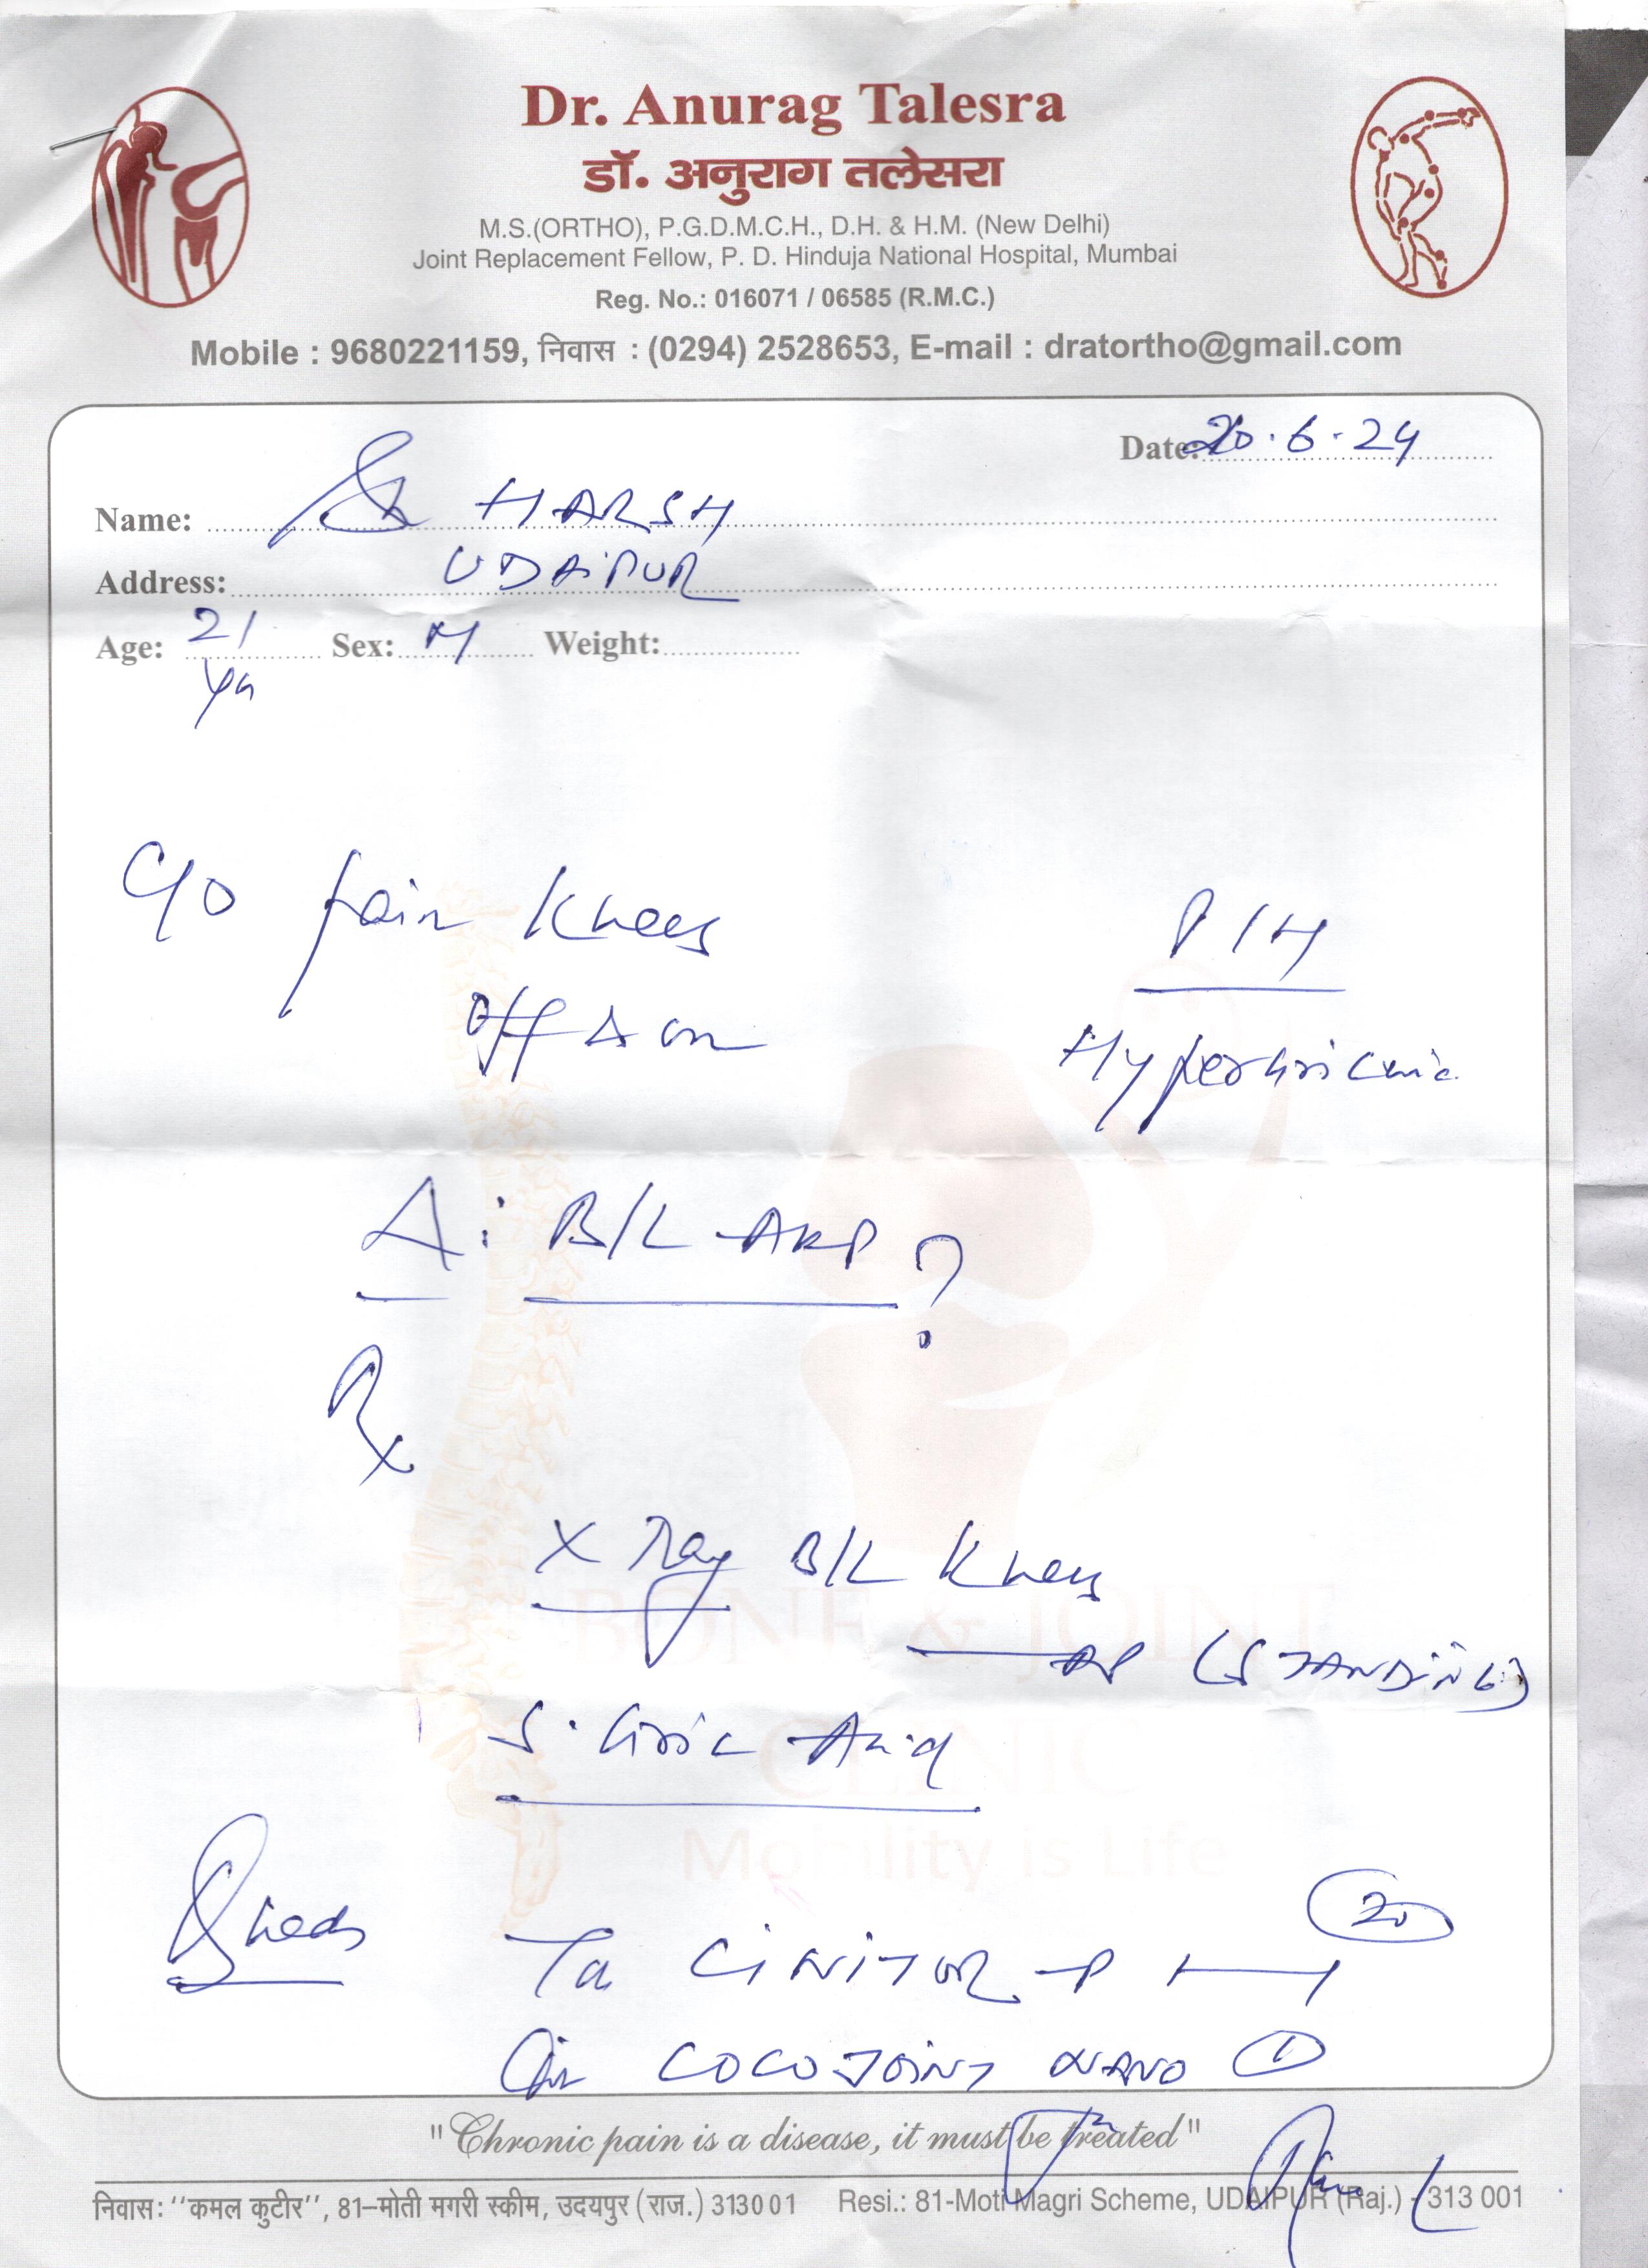 Dr. Anurag Talesra
डॉ. अनुराग तलेसरा
M.S.(ORTHO), P.G.D.M.C.H., D.H. & H.M. (New Delhi)
Joint Replacement Fellow, P. D. Hinduja National Hospital, Mumbai
Reg. No.: 016071 / 06585 (R.M.C.)
Mobile : 9680221159, निवास : (0294) 2528653, E-mail : dratortho@gmail.com
Date: 20.6.24
Name: HARSH
Address: UDAIPUR
Age: 21 Sex: M Weight:
C/o pain Knees
off & on
P/H
Hyperuricemia
Δ: B/L AKP ?
Rx
X Ray B/L Knees
AP (STANDING)
S. Uric Acid
BONE & JOINT
CLINIC
Mobility is Life
20
Quads
COCOJOINT NANO 1
"Chronic pain is a disease, it must be treated"
निवास: ''कमल कुटीर'', 81–मोती मगरी स्कीम, उदयपुर (राज.) 313001 Resi.: 81-Moti Magri Scheme, UDAIPUR (Raj.) - 313 001